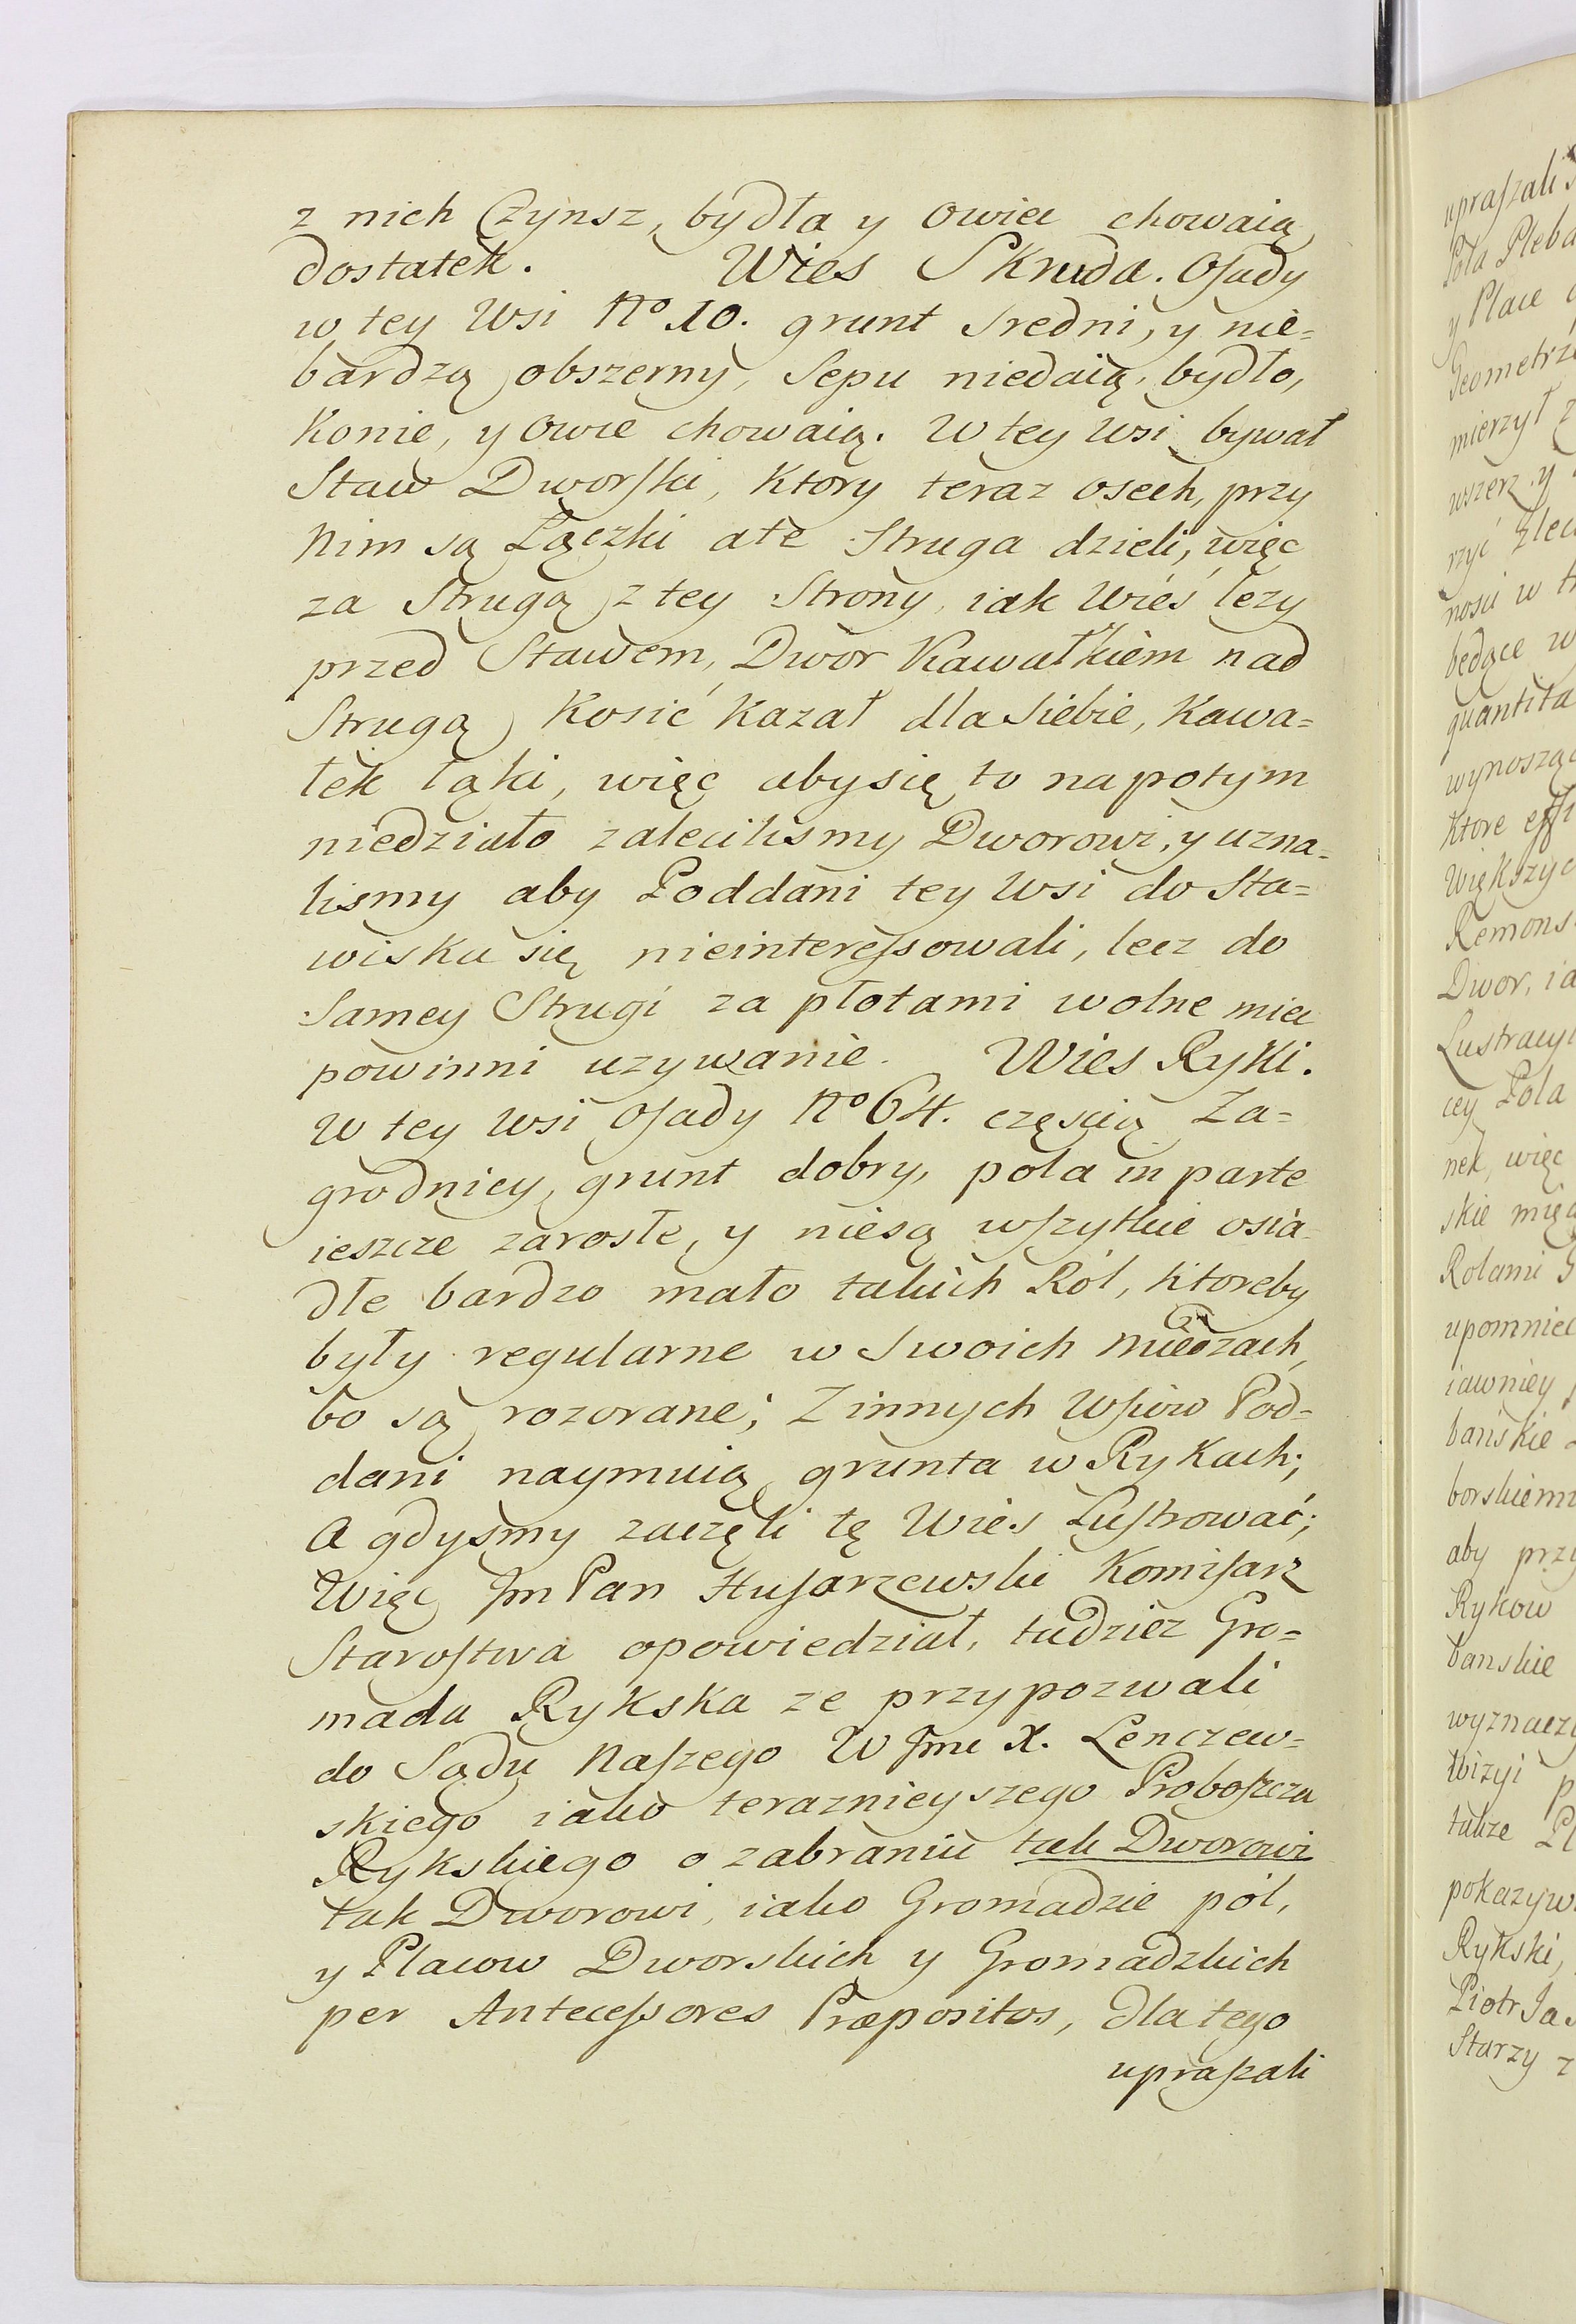 z nich Czynsz, bydła y owiec chowaią
dostatek. Wies Skruda. Osady
w tey Wsi No 10. grunt Sredni, y nie=
bardzą obszerny, Sepu niedaią, bydło,
Konie, y Owce chowaią. W tey wsi bywał
Staw Dworski, Ktory teraz osech, przy
Nim są Łączki ale Struga dzieli, więc
za Strugą z tey Strony, iak Wieś leży
przed Stawem, Dwor Kawałkiem nad
Strugą Kosić Kazał dla Siebie, Kawa=
łek łąki, więc aby się to napotym
niedziało zalecilismy Dworowi, y uzna=
lismy aby Poddani tey Wsi do Sta=
wiska się nieinteressowali, lecz do
Samey Strugi za płotami wolne miec
powinni uzywanie. Wies Ryki.
W tey wsi Osady No 64. częscią Za=
grodnicy, grunt dobry, pola in parte
ieszcze zarosłe, y niesą wszytkie osia=
dłe bardzo mało takich Ról, ktoreby
były regularne w Swoich miedzach,
bo są rozorane; Z innych Wsiow Pod=
dani naymuią grunta w Rykach;
A gdysmy zaczęli tę Wies Lustrować;
Więc Jm Pan Husarzewski Komisarz
Starostwa opowiedział, tudziez Gro=
mada Rykska ze przypozwali
do Sądu Naszego W Jmc X. Lenczew=
skiego iako teraznieyszego Proboszcza
Rykskiego o zabraniu tak Dworowi
tak Dworowi, iako Gromadzie pól,
y Placow Dworskich y Gromadzkich
per Antecessores Præpositos, dla tego
upraszali
upraszali
Pola Pleba
y Place
Geometrz
mierzył
wszerz y
rzyć Zlec
nosci w
będące w
quantita
wynosząc
Ktore
Większyc
Remons
Dwor, ia
Lustracyi
cey Pola
nek, więc
skie
Rolami
upomniec
iawniey
bańskie
borskiemi
aby przy
Rykow
banskie
wyznaczy
Wizyi
także Pl
pokazyw
Rykski,
Piotr Ja
Starzy z